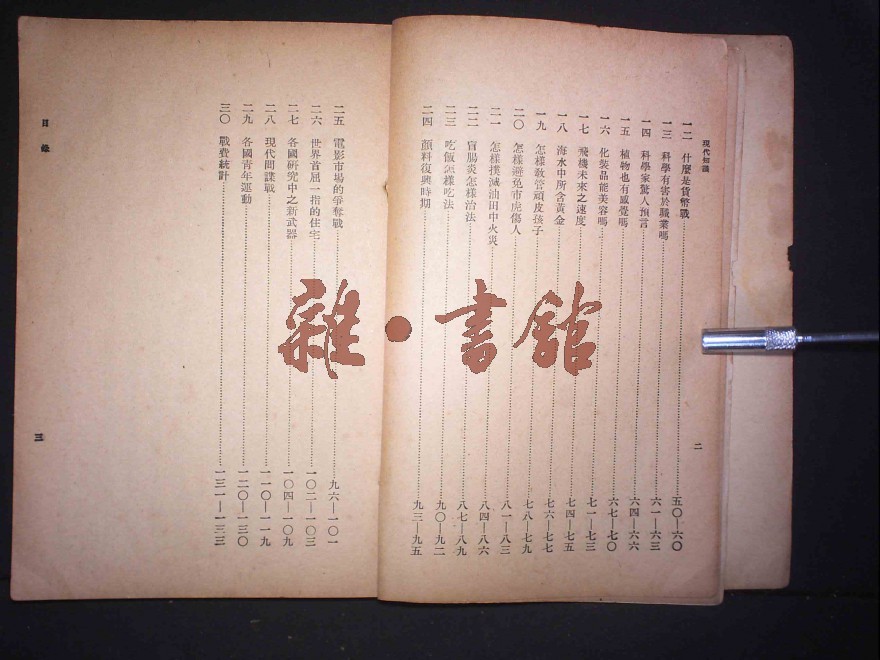 現代知識
二
一二 什麼是貨幣戰 五〇—六〇
一三 科學有害於職業嗎 六一—六三
一四 科學家驚人預言 六四—六六
一五 植物也有感覺嗎 六七—七〇
一六 化裝品能美容嗎 七一—七三
一七 飛機未來之速度 七四—七五
一八 海水中所含黃金 七六—七七
一九 怎樣教管頑皮孩子 七八—七九
二〇 怎樣避免市虎傷人 八一—八三
二一 怎樣撲滅油田中火災 八四—八六
二二 盲腸炎怎樣治法 八七—八九
二三 吃飯怎樣吃法 九〇—九二
二四 顏料復興時期 九三—九五
二五 電影市場的爭奪戰 九六—一〇一
二六 世界首屈一指的住宅 一〇二—一〇三
二七 各國研究中之新武器 一〇四—一〇九
二八 現代間諜戰 一一〇—一一九
二九 各國青年運動 一二〇—一三〇
三〇 戰費統計 一三一—一三三
目錄
三
雜·書館